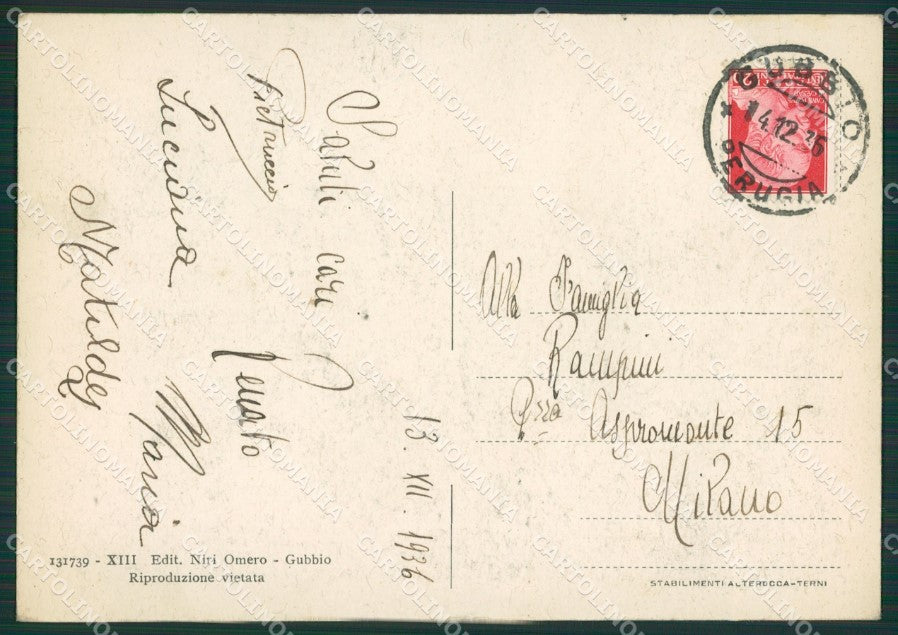 Saluti cari
Pietruccio
Renato
Luciana
Maria
Matilde
13. XII. 1936
GUBBIO
* 14.12.36
PERUGIA
Alla Famiglia
Rampini
P.zza Aspromonte 15
Milano
131739 - XIII Edit. Niri Omero - Gubbio
Riproduzione vietata
STABILIMENTI ALTEROCCA-TERNI
CARTOLINOMANIA